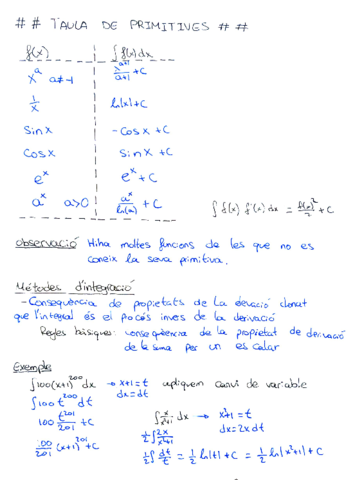 ## TAULA DE PRIMITIVES ##
f(x) ∫f(x)dx
x^a a≠-1 x^(a+1)/(a+1) + C
1/x ln|x| + C
Sin x -Cos x + C
Cos x Sin x + C
e^x e^x + C
a^x a>0 a^x/ln(a) + C
∫f(x) f'(x) dx = f(x)²/2 + C
Observació Hiha moltes funcions de les que no es
coneix la seva primitiva.
Métodes d'integració
- Conseqüència de propietats de la derivació donat
que l'integral és el procés invers de la derivació
Regles bàsiques: conseqüència de la propietat de derivació
de la suma per un escalar
Exemple
∫100(x+1)^200 dx → x+1=t apliquem canvi de variable
dx=dt
∫100 t^200 dt
100 t^201/201 + C
100/201 (x+1)^201 + C
∫ x/(x²+1) dx → x²+1=t
dt=2x dx
1/2 ∫ 2x/(x²+1)
1/2 ∫ dt/t = 1/2 ln|t| + C = 1/2 ln|x²+1| + C